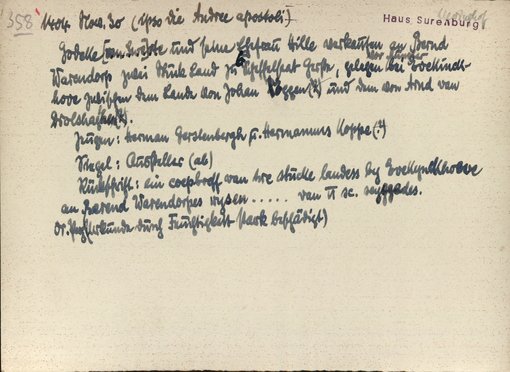 358 1404 Nov. 30 (ipso die Andree apostoli)
Haus Surenburg
Godeke und seine Ehefrau Hille verkaufen an Bernd
Warendorp zwei Stück Land zu 6 Scheffelsat Gerste, gelegen bei
hove zwischen dem Lande von Johan und dem von Arnd van
Zeugen: Herman Gerstenbergh u. Hermannus Koppe(?)
Siegel: Aussteller (ab)
Rückschrift: ein coepbreff van twe stucke landess by
an Barend Warendorpes wysen ..... van II sc.
Or. Perg. (Urkunde durch Feuchtigkeit stark beschädigt)